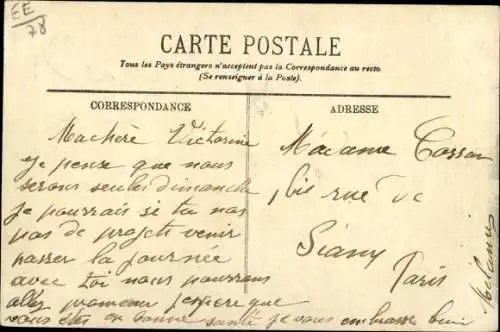 EE
78
CARTE POSTALE
Tous les Pays étrangers n'acceptent pas la Correspondance au recto.
(Se renseigner à la Poste).
CORRESPONDANCE
Machère Victorine
Je pense que nous
serons seules dimanche
je pourrais si tu nas
pas de projets venir
passer la journée
avec toi nous pourrons
allez promener jespere que
vous êtes en bonne santé je vous embrasse bien
ADRESSE
Madame
1 bis rue de
Siam
Paris